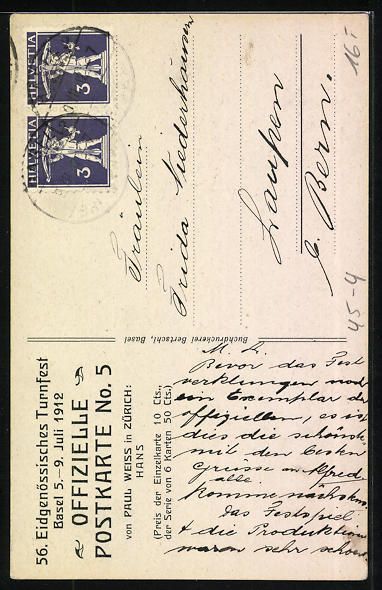 HELVETIA
3
HELVETIA
3
16.-
Fräulein
Frida Niederhäuser
Laupen
C. Bern.
45-4
Buchdruckerei Bertschi, Basel
56. Eidgenössisches Turnfest
Basel 5.–9. Juli 1912
OFFIZIELLE
POSTKARTE No. 5
von PAUL WEISS in ZÜRICH:
HANS
(Preis der Einzelkarte 10 Cts.,
der Serie von 6 Karten 50 Cts.)
M. L.
Bevor das Fest
verklungen noch
ein Exemplar der
offiziellen, es ist
dies die schönste
mit den besten
Grüsse an Alfred
alle.
Komme nächstens
Das Festspiel
& die Produktion
waren sehr schön